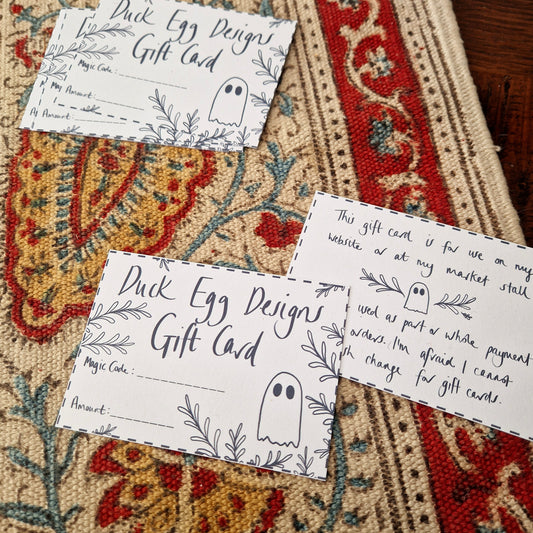 Duck Egg Designs
Gift Card
Magic Code: ___________
Amount: ___________
This gift card is for use on my
website or at my market stall
used as part or whole payment
orders. I'm afraid I cannot
change for gift cards.
Duck Egg Designs
Gift Card
Magic Code: ___________
Amount: ___________